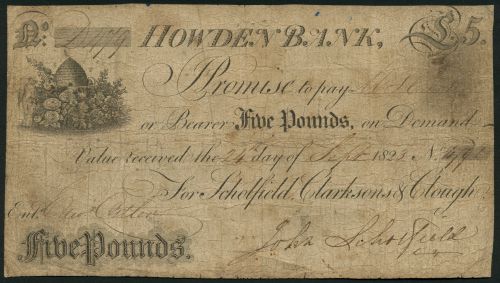 No. HOWDEN BANK, £5.
I Promise to pay
or Bearer Five Pounds, on Demand
Value received the 24th day of Sept 1825 No.
For Scholfield, Clarksons & Clough
Entd.
Five Pounds. John Scholfield